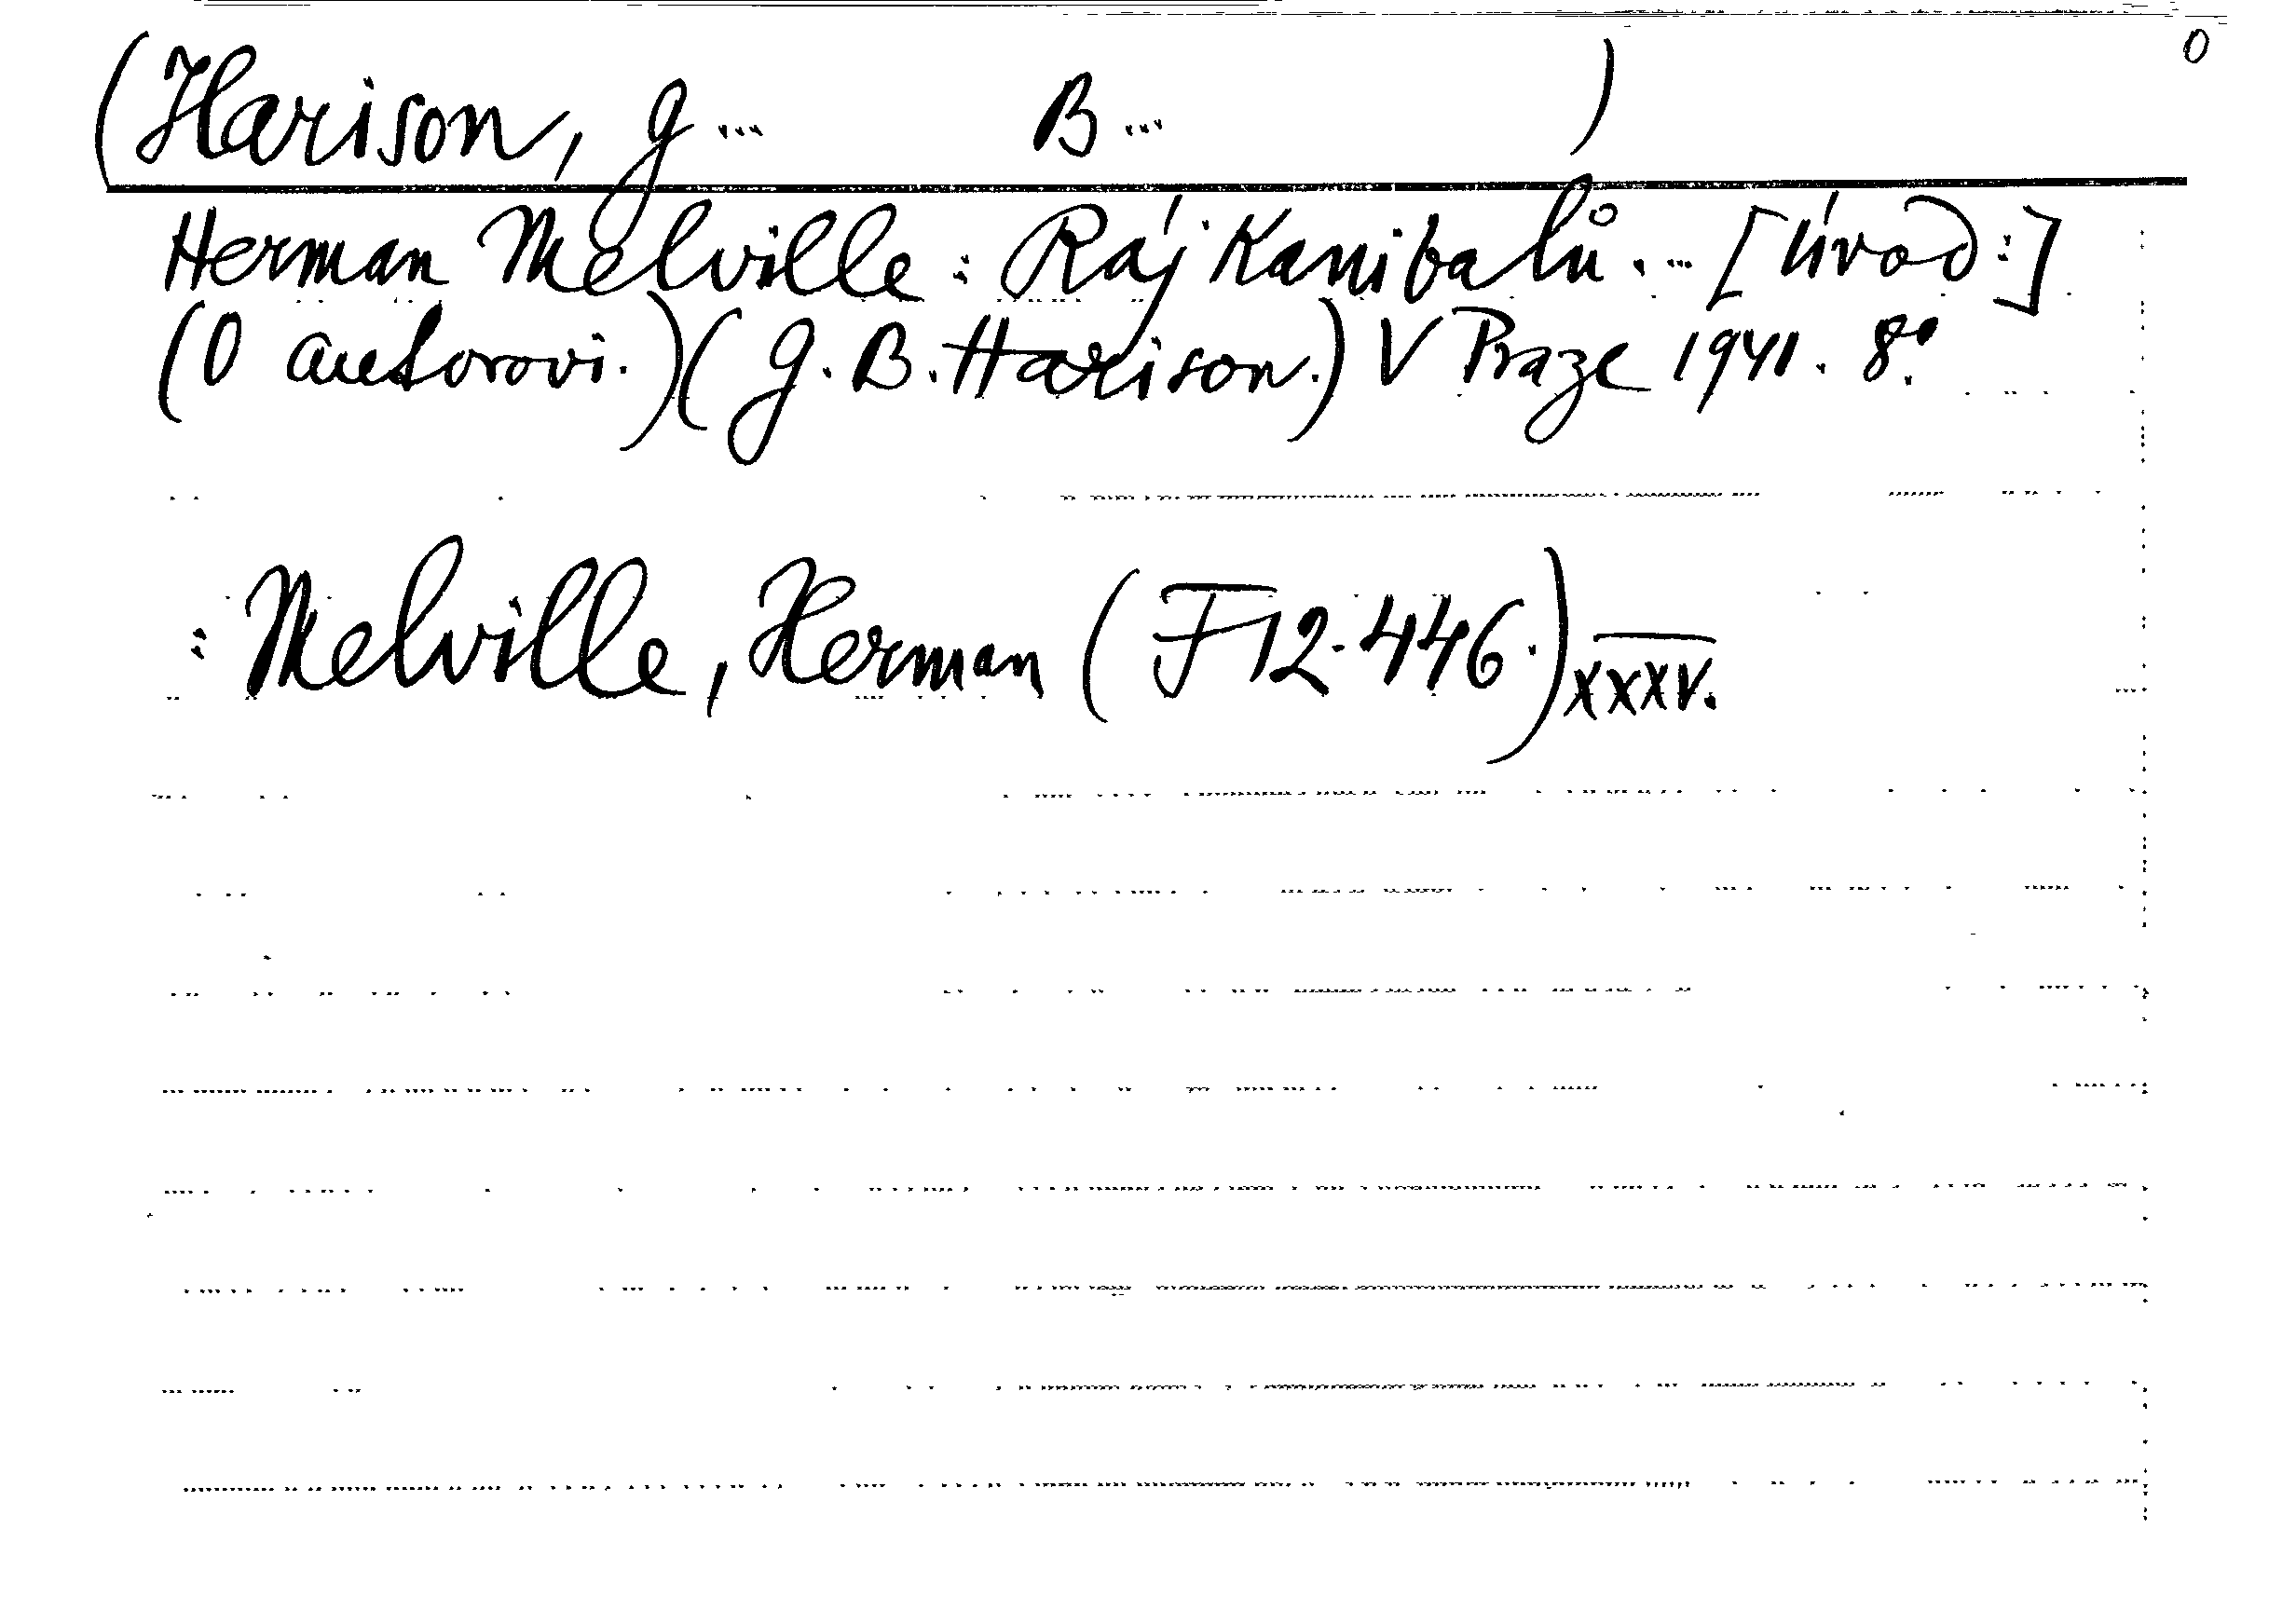 (Harison, G... B... ) 0
Herman Melville: Ráj Kanibalů.... [Úvod:]
(O autorovi.)(G. B. Harison.) V Praze 1941. 8°.
: Melville, Herman (F 12.446.) XXXV.